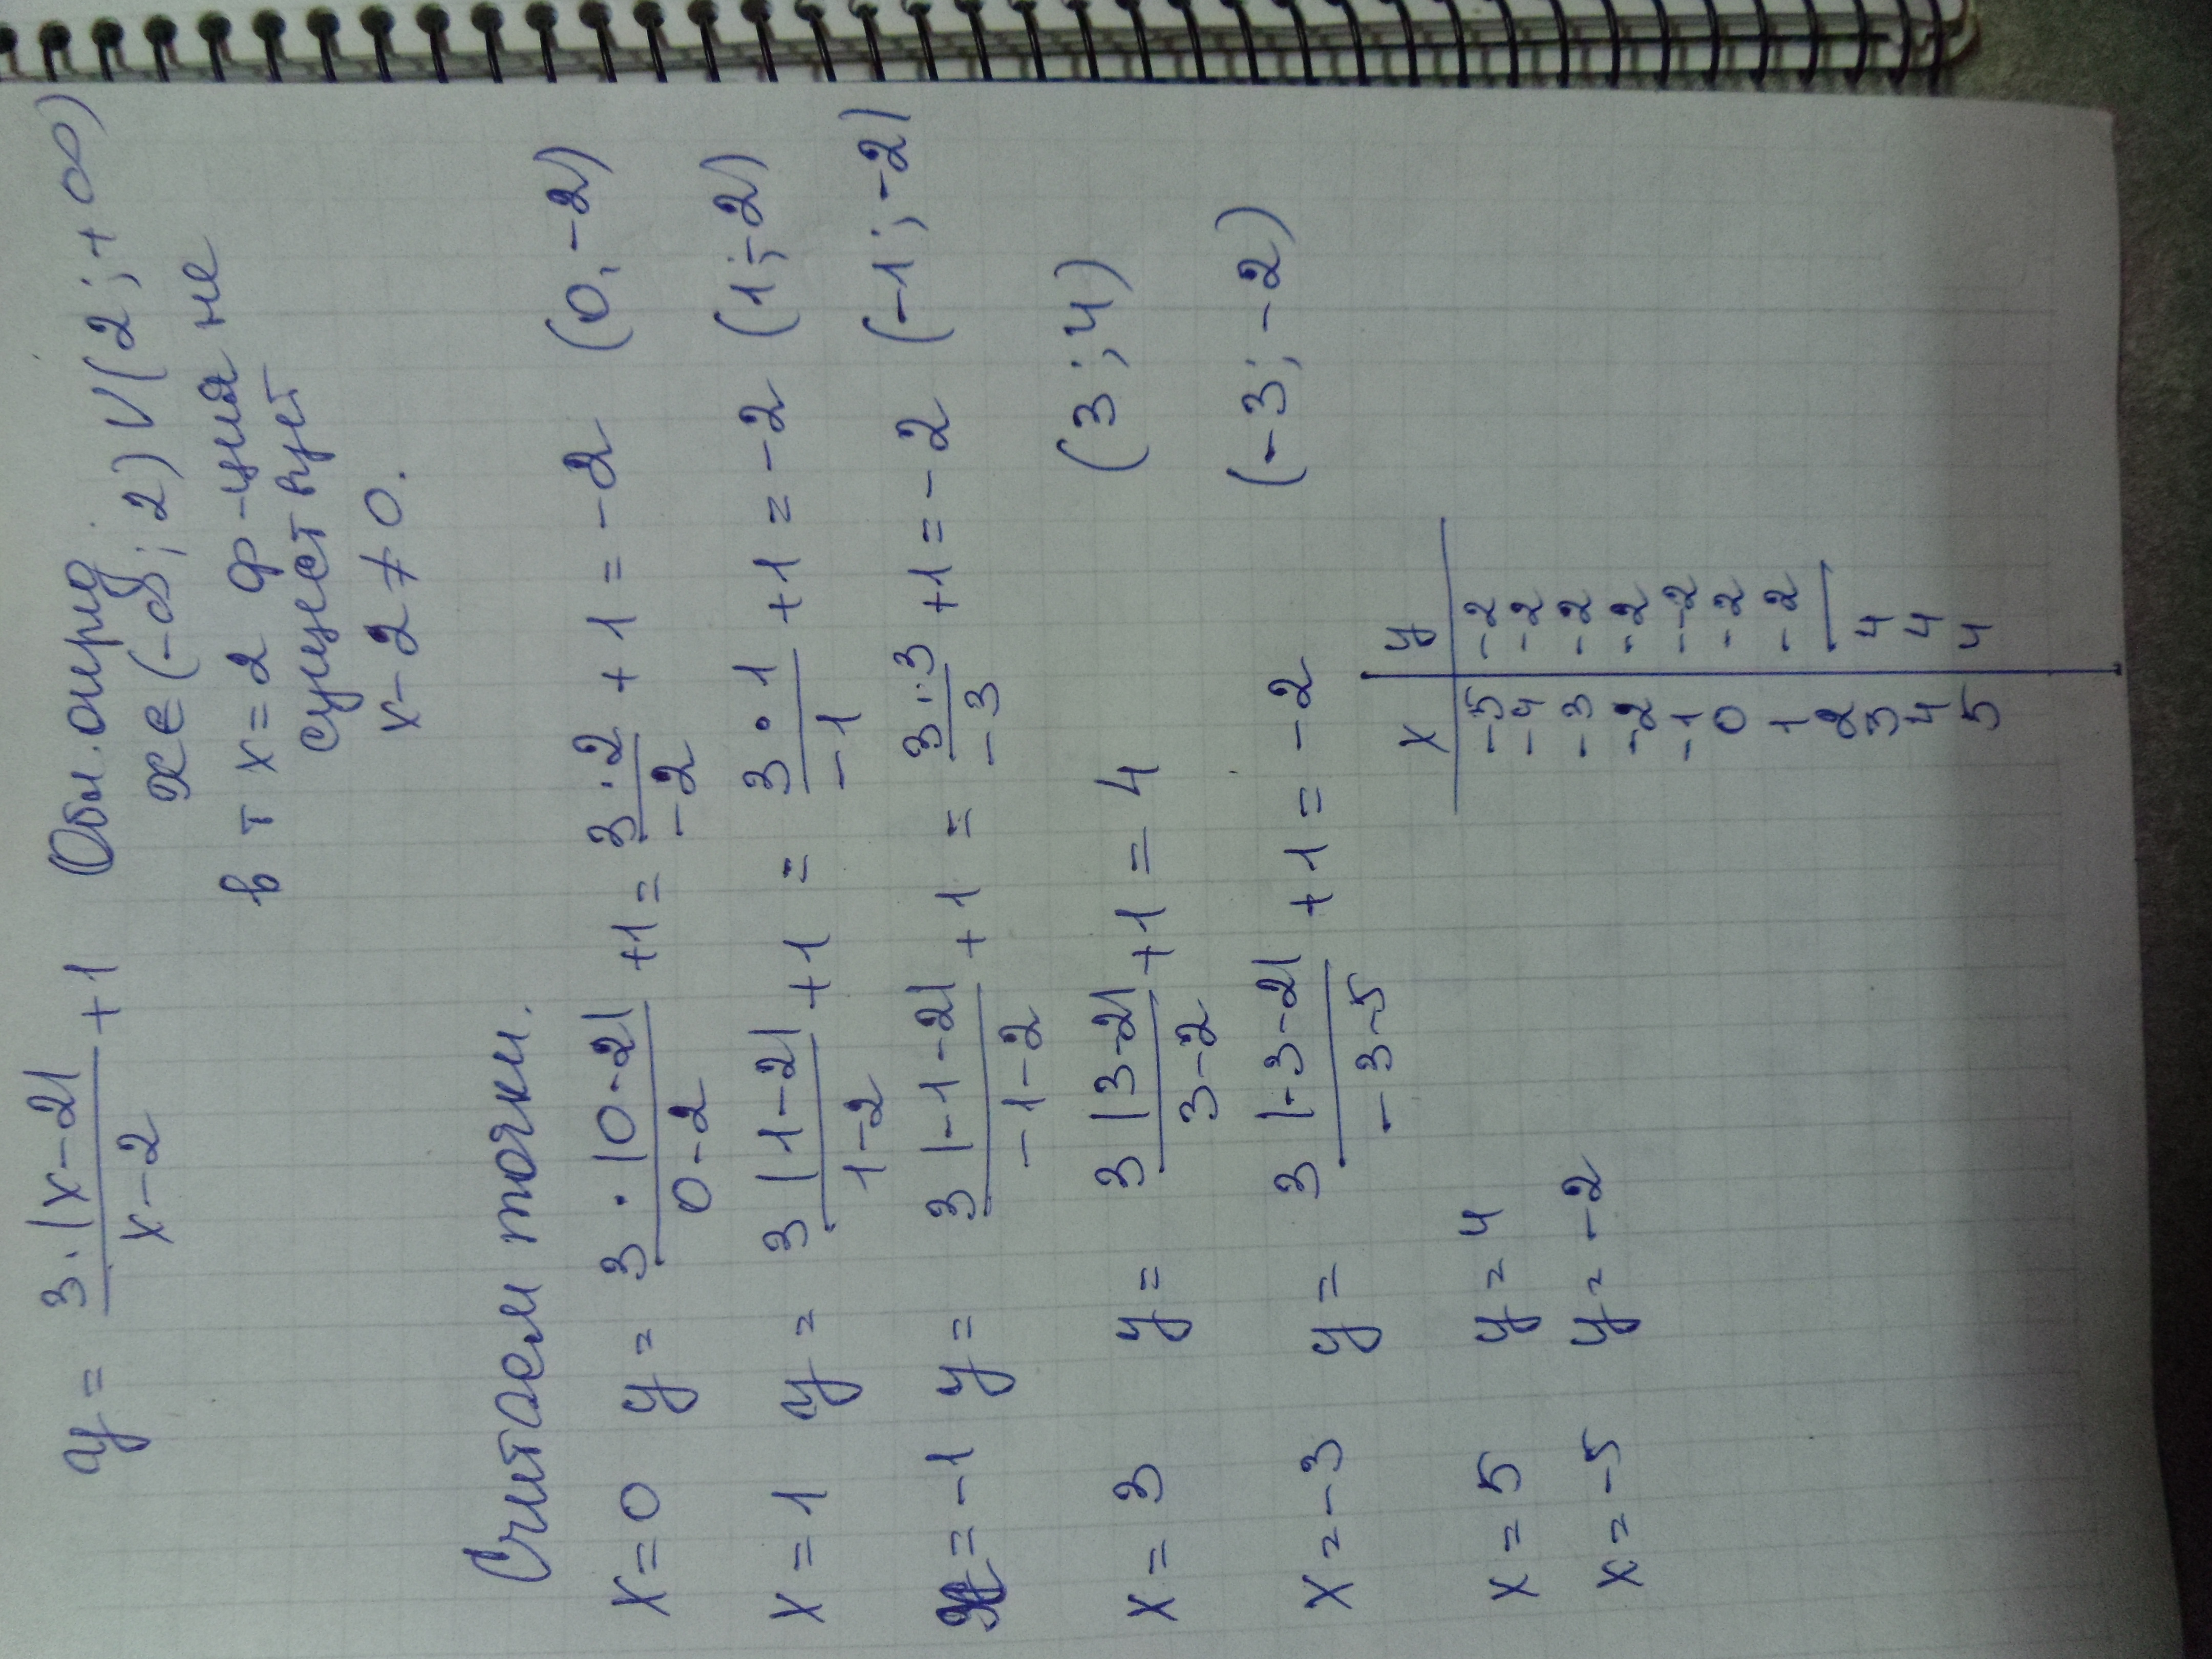 y = 3·|x-2| / x-2 + 1 Обл. опред
x ∈ (-∞; 2) V (2; + ∞)
в т x = 2 ф-ция не
существует
x - 2 ≠ 0.
Считаем точки.
x = 0 y = 3·|0-2| / 0-2 + 1 = 3·2 / -2 + 1 = -2 (0, -2)
x = 1 y = 3|1-2| / 1-2 + 1 = 3·1 / -1 + 1 = -2 (1; -2)
x = -1 y = 3|-1-2| / -1-2 + 1 = 3·3 / -3 + 1 = -2 (-1; -2)
x = 3 y = 3|3-2| / 3-2 + 1 = 4 (3; 4)
x = -3 y = 3|-3-2| / -3-5 + 1 = -2 (-3; -2)
x = 5 y = 4
x = -5 y = -2
x y
-5 -2
-4 -2
-3 -2
-2 -2
-1 -2
0 -2
1 -2
2 —
3 4
4 4
5 4